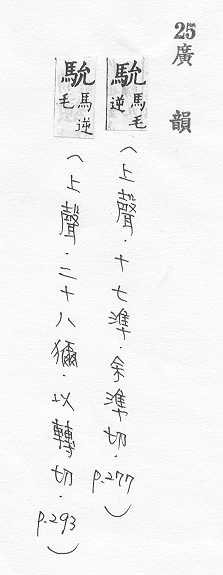 25 廣韻
馻 馬毛逆 (上聲．十七準．余準切．p.277)
馻 馬逆毛 (上聲．二十八獮．以轉切．p.293)